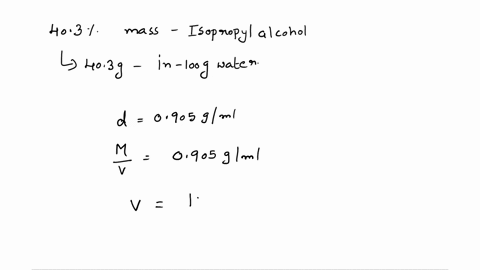 40.3% mass - Isopropyl alcohol
↳ 40.3g - in-100g water.
d = 0.905 g/ml
M/V = 0.905 g/ml
V = 1.